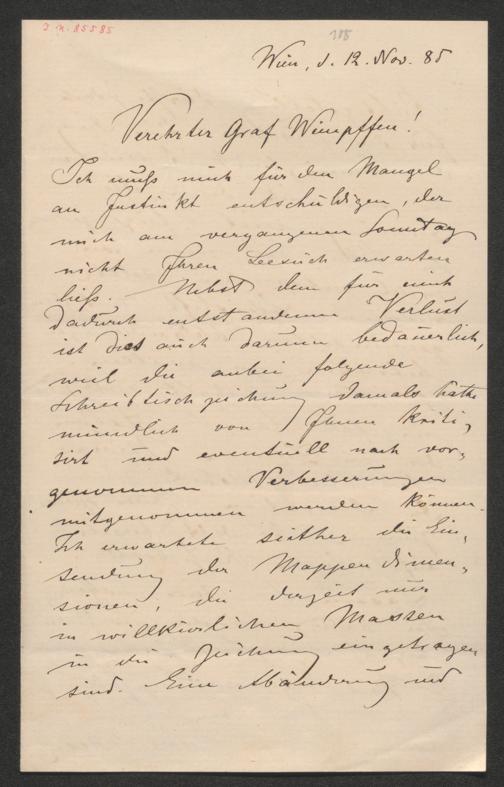 J. N. 85585
188
Wien, d. 12. Nov. 85
Verehrter Graf Wimpffen!
Ich muß mich für den Mangel
an Instinkt entschuldigen, der
mich am vergangenen Sonntag
nicht Ihren Besuch erwarten
ließ. Nebst dem für mich
dadurch entstandenen Verlust
ist dies auch darum bedauerlich,
weil die anbei folgende
Schreibtischzeichnung damals hätte
mündlich von Ihnen kriti-
sirt und eventuell nach vor-
genommenen Verbesserungen
mitgenommen werden können.
Ich erwartete seither die Ein-
sendung der Mappendimen-
sionen, die derzeit nur
in willkürlichen Massen
in die Zeichnung eingetragen
sind. Eine Abänderung und